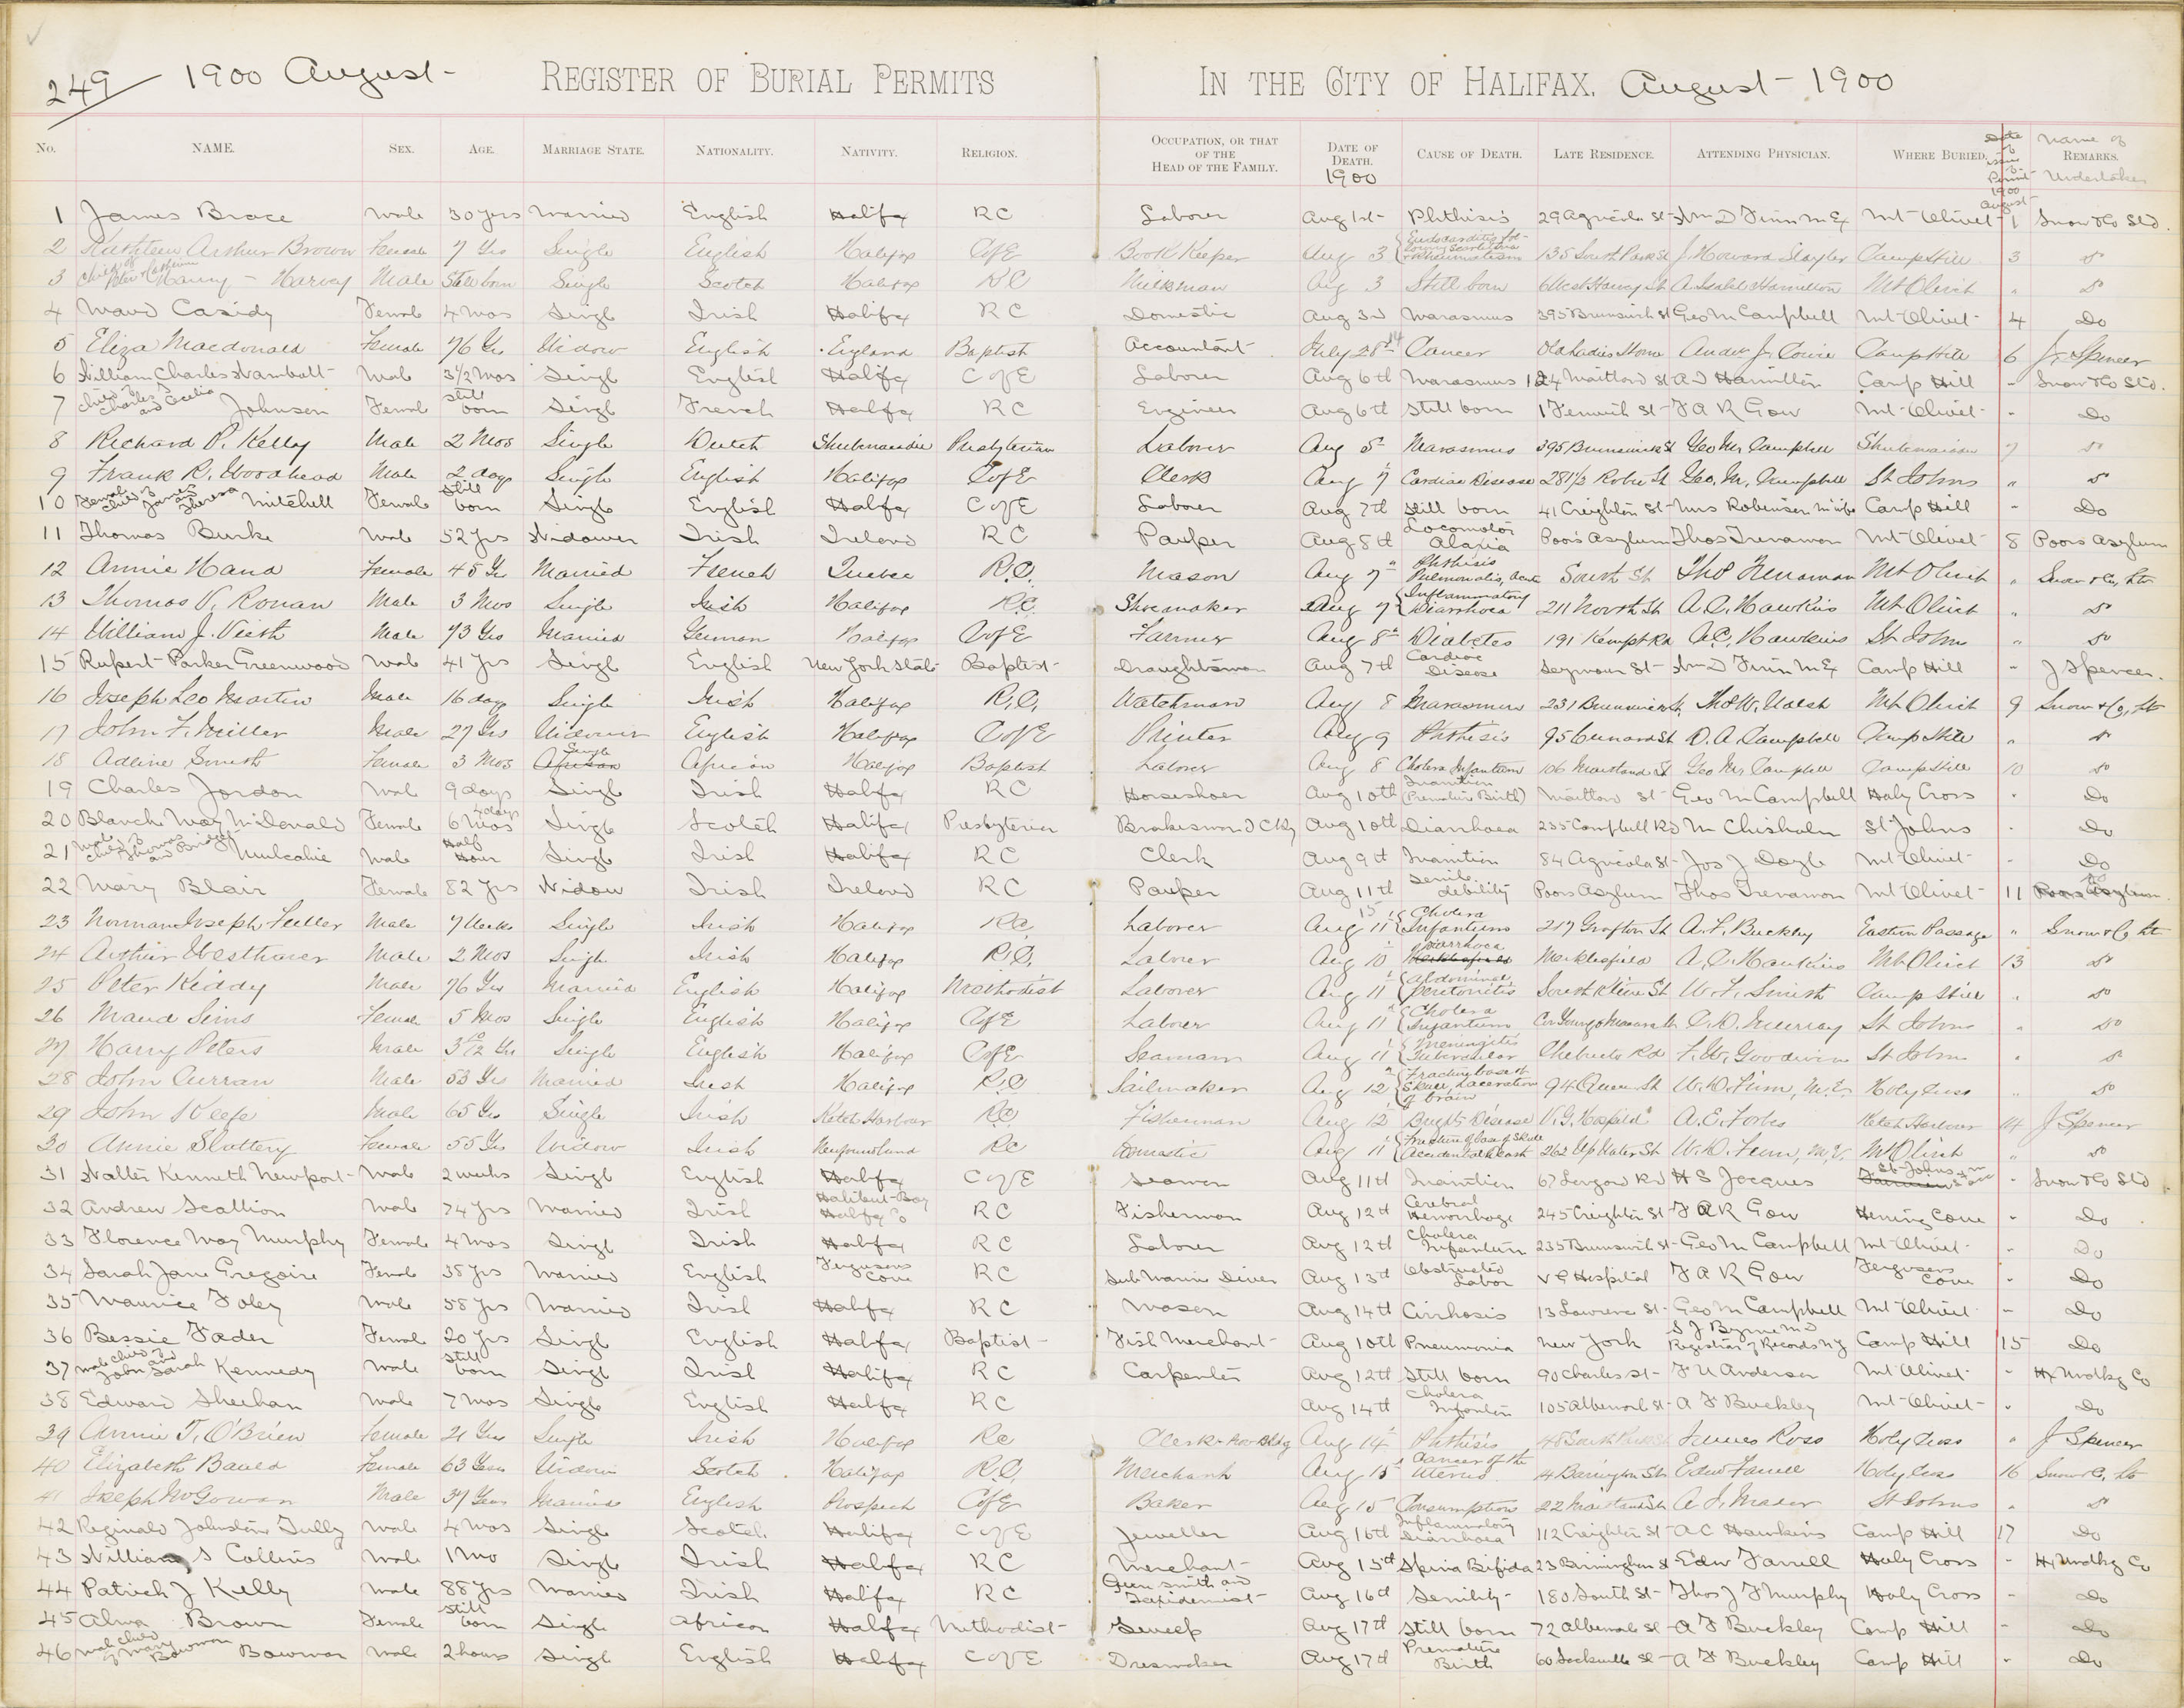 249 1900 August - REGISTER OF BURIAL PERMITS IN THE CITY OF HALIFAX. August - 1900
No. NAME. SEX. AGE. MARRIAGE STATE. NATIONALITY. NATIVITY. RELIGION. OCCUPATION, OR THAT OF THE HEAD OF THE FAMILY. DATE OF DEATH. 1900 CAUSE OF DEATH. LATE RESIDENCE. ATTENDING PHYSICIAN. WHERE BURIED. Date of issue of Permit 1900 August Name of REMARKS. Undertaker
1 James Brace Male 30 yrs Married English Halifax RC Laborer Aug 1st Phthisis 29 Agricola St Wm D Finn M Ex Mt Olivet 1 Snow & Co Ltd.
2 Kathleen Arthur Brown Female 7 Yrs Single English Halifax CofE Book Keeper Aug 3 Endocarditis following Scarlatina Rheumatism 135 South Park St J. Howard Slayter Camp Hill 3 Do
3 Child of Peter & Catherine Harvey Male Still born Single Scotch Halifax RC Milkman Aug 3 Still born A. Isabel Hamilton Mt Olivet " Do
4 Maud Casidy Female 4 Mos Single Irish Halifax RC Domestic Aug 3d Marasmus 395 Brunswick St Geo M Campbell Mt Olivet 4 Do
5 Eliza Macdonald Female 76 Yrs Widow English England Baptist Accountant July 28th Cancer Old Ladies Home Andw J. Cowie Camp Hill 6 J. Spencer
6 William Charles Wambolt Male 3 1/2 Mos Single English Halifax C of E Laborer Aug 6th Marasmus 124 Maitland St A I Hamilton Camp Hill " Snow & Co Ltd.
7 Child of Charles and Cecilia Johnson Female Still born Single French Halifax RC Engineer Aug 6th Still born 1 Fenwick St F A R Gow Mt Olivet " Do
8 Richard P. Kelly Male 2 Mos Single Dutch Shubenacadie Presbyterian Laborer Aug 5 Marasmus 395 Brunswick St Geo M Campbell Shubenacadie 7 Do
9 Frank R. Woodhead Male 2 days Single English Halifax CofE Clerk Aug 7 Cardiac Disease 281 1/2 Robie St Geo. M. Campbell St Johns " Do
10 Female child of James and Theresa Mitchell Female Still born Single English Halifax C of E Laborer Aug 7th Still born 41 Creighton St Mrs Robinson M wife Camp Hill " Do
11 Thomas Burke Male 52 yrs Widower Irish Ireland RC Pauper Aug 8th Locomotor Ataxia Poors Asylum Thos Trenaman Mt Olivet 8 Poors Asylum
12 Annie Hand Female 45 Yrs Married French Quebec R.C. Mason Aug 7" Phthisis Pulmonalis, acute South St Thos Trenaman Mt Olivet " Snow & Co, Ltd
13 Thomas V. Ronan Male 3 Mos Single Irish Halifax R.C. Shoemaker Aug 7" Inflammatory Diarrhoea 211 North St A.C. Hawkins Mt Olivet " Do
14 William J. Vieth Male 73 Yrs Married German Halifax CofE Farmer Aug 8th Diabetes 191 Kempt Rd A.C. Hawkins St Johns " Do
15 Rupert Parker Greenwood Male 41 yrs Single English New York State Baptist Draughtsman Aug 7th Cardiac Disease Seymour St Wm D Finn M Ex Camp Hill " J Spencer.
16 Joseph Leo Martin Male 16 days Single Irish Halifax R.C. Watchman Aug 8 Marasmus 231 Brunswick St Thos W. Walsh Mt Olivet 9 Snow & Co, Ltd
17 John F. Miller Male 27 Yrs Widower English Halifax CofE Printer Aug 9 Phthisis 95 Cunard St D.A. Campbell Camp Hill " Do
18 Adline Smith Female 3 Mos Single African Halifax Baptist Laborer Aug 8 Cholera Infantum 106 Maitland St Geo M Campbell Camp Hill 10 Do
19 Charles Jordon Male 9 days Single Irish Halifax RC Horseshoer Aug 10th Inanition (Premature Birth) Maitland St Geo M Campbell Holy Cross " Do
20 Blanch May McDonald Female 6 Mos 4 days Single Scotch Halifax Presbyterian Brakesman I C Ry Aug 10th Diarrhoea 235 Campbell Rd M Chisholm St Johns " Do
21 Male child of Thomas and Bridget Mulcahie Male Half Hour Single Irish Halifax RC Clerk Aug 9th Inanition 84 Agricola St Jos J Doyle Mt Olivet " Do
22 Mary Blair Female 82 yrs Widow Irish Ireland RC Pauper Aug 11th Senile debility Poors Asylum Thos Trenaman Mt Olivet 11 Poors Asylum
23 Norman Joseph Fuller Male 7 Weeks Single Irish Halifax RC Laborer Aug 11 Cholera Infantum 217 Grafton St A.F. Buckley Eastern Passage " Snow & Co Ltd
24 Arthur Westhaver Male 2 Mos Single Irish Halifax R.C. Laborer Aug 10 Diarrhoea Mecklesfield A.C. Hawkins Mt Olivet 13 Do
25 Peter Kiddy Male 76 Yrs Married English Halifax Methodist Laborer Aug 11 Abdominal peritonitis South Kline St W.F. Smith Camp Hill " Do
26 Maud Sims Female 5 Mos Single English Halifax CofE Laborer Aug 11 Cholera Infantum C.D. Murray St Johns " Do
27 Harry Peters Male Single English Halifax CofE Seaman Aug 11 Meningitis Tubercular Chebucto Rd F.W. Goodwin St Johns " Do
28 John Curran Male 53 Yrs Married Irish Halifax R.C. Sailmaker Aug 12 Fracture base of Skull, Laceration of brain 94 Queen St W.D. Finn, M.E. Holy Cross " Do
29 John Keefe Male 65 Yrs Single Irish Ketch Harbour RC Fisherman Aug 12 Brights Disease V.G. Hospital A.E. Forbes Ketch Harbour 14 J Spencer
30 Annie Slattery Female 55 Yrs Widow Irish Newfoundland RC Domestic Aug 11 Fracture of base of Skull Accidental death 262 Up Water St W.D. Finn, M.E. Mt Olivet " Do
31 Walter Kenneth Newport Male 2 weeks Single English Halifax C of E Seaman Aug 11th Inanition 67 Longard Rd H S Jacques St Johns " Snow & Co Ltd.
32 Andrew Scallion Male 74 yrs Married Irish Halibut Bay Halifax Co RC Fisherman Aug 12th Cerebral Hemorrhage 245 Creighton St F A R Gow Herring Cove " Do
33 Florence May Murphy Female 4 Mos Single Irish Halifax RC Laborer Aug 12th Cholera Infantum 235 Brunswick St Geo M Campbell Mt Olivet " Do
34 Sarah Jane Gregoire Female 35 yrs Married English Fergusons Cove RC Sub Marine Diver Aug 13th Obstructed Labor V G Hospital F A R Gow Fergusons Cove " Do
35 Maurice Foley Male 58 yrs Married Irish Halifax RC Mason Aug 14th Cirrhosis 13 Lawrence St Geo M Campbell Mt Olivet " Do
36 Bessie Fader Female 20 yrs Single English Halifax Baptist Fish Merchant Aug 10th Pneumonia New York S J Byrne MD Registrar of Records NY Camp Hill 15 Do
37 Male child of John and Sarah Kennedy Male Still born Single Irish Halifax RC Carpenter Aug 12th Still born 90 Charles St F U Anderson Mt Olivet " Hx Undtkg Co
38 Edward Sheehan Male 7 Mos Single English Halifax RC Aug 14th Cholera Infantum 105 Albemarle St A F Buckley Mt Olivet " Do
39 Annie T. O'Brien Female 21 Yrs Single Irish Halifax RC Clerk Aug 14 Phthisis James Ross Holy Cross " J Spencer
40 Elizabeth Bauld Female 63 Years Widow Scotch Halifax R.C. Merchant Aug 15 Cancer of the Uterus 4 Barrington St Edw Farrell Holy Cross 16 Snow & Co, Ltd
41 Joseph McGowan Male 37 Years Married English Prospect CofE Baker Aug 15 Consumption 22 Maitland St A.J. Mader St Johns " Do
42 Reginald Johnston Tully Male 4 Mos Single Scotch Halifax C of E Jeweller Aug 16th Inflammatory Diarrhoea 112 Creighton St A C Hawkins Camp Hill 17 Do
43 William S Collins Male 1 Mo Single Irish Halifax RC Merchant Aug 15th Spina Bifida 23 Birmingham St Edw Farrell Holy Cross " Hx Undtkg Co
44 Patrick J Kelly Male 88 yrs Married Irish Halifax RC Gun smith and Taxidermist Aug 16th Senility 180 South St Thos J F Murphy Holy Cross " Do
45 Alma Brown Female Still born Single African Halifax Methodist Sweep Aug 17th Still born 72 Albemarle St A F Buckley Camp Hill " Do
46 Male child of Mary Bowman Male 2 hours Single English Halifax C of E Dressmaker Aug 17th Premature Birth 60 Sackville St A F Buckley Camp Hill " Do